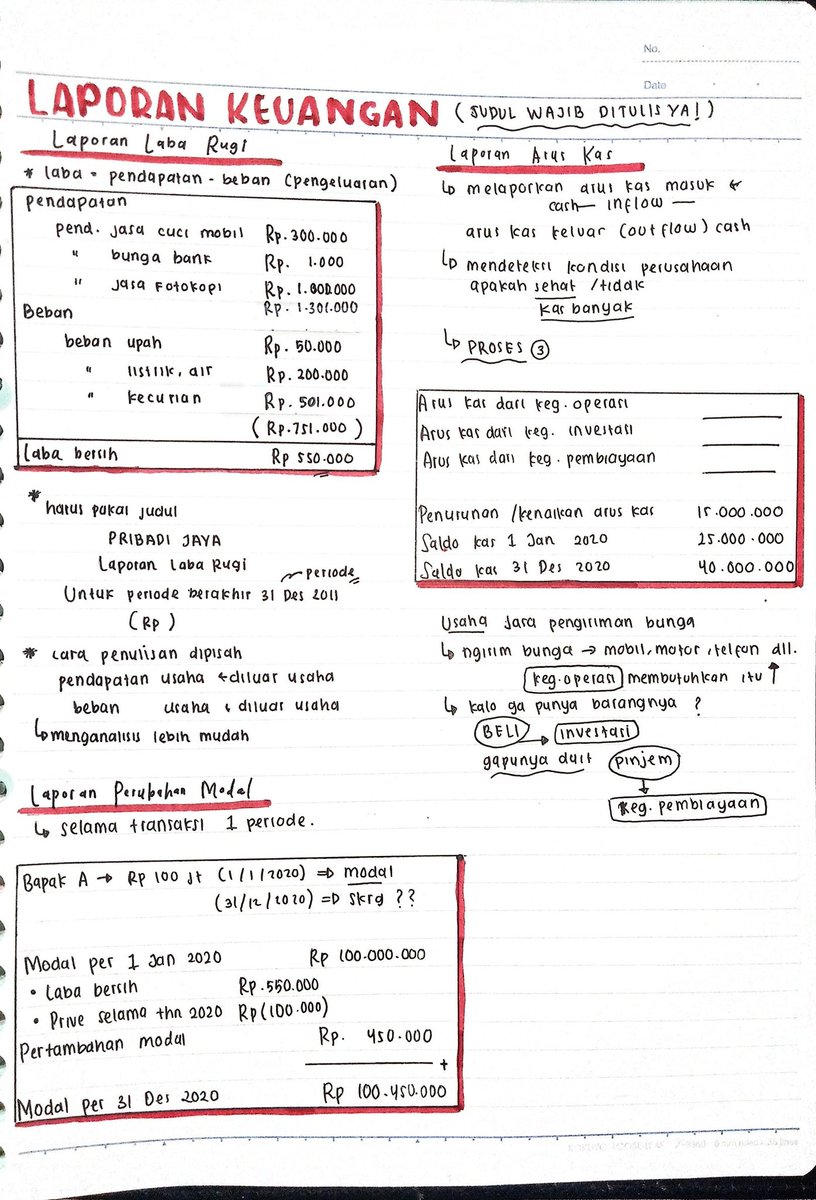 No.
Date
LAPORAN KEUANGAN (JUDUL WAJIB DITULIS YA!)
Laporan Laba Rugi
* laba = pendapatan - beban (pengeluaran)
pendapatan
pend. jasa cuci mobil Rp. 300.000
" bunga bank Rp. 1.000
" jasa fotokopi Rp. 1.000.000
Rp. 1.301.000
Beban
beban upah Rp. 50.000
" listrik, air Rp. 200.000
" kecurian Rp. 501.000
(Rp. 751.000)
Laba bersih Rp 550.000
* harus pakai judul
PRIBADI JAYA
Laporan Laba Rugi
periode
Untuk periode berakhir 31 Des 2011
(Rp )
* cara penulisan dipisah
pendapatan usaha + diluar usaha
beban usaha + diluar usaha
↳ menganalisis lebih mudah
Laporan Perubahan Modal
↳ selama transaksi 1 periode.
Bapak A → Rp 100 jt (1/1/2020) ⇒ modal
(31/12/2020) ⇒ skrg ??
Modal per 1 Jan 2020 Rp 100.000.000
• Laba bersih Rp. 550.000
• Prive selama thn 2020 Rp (100.000)
Pertambahan modal Rp. 450.000
+
Modal per 31 Des 2020 Rp 100.450.000
Laporan Arus Kas
↳ melaporkan arus kas masuk ←
cash — inflow —
arus kas keluar (outflow) cash
↳ mendeteksi kondisi perusahaan
apakah sehat / tidak
kas banyak
↳ PROSES ③
Arus kas dari keg. operasi
Arus kas dari keg. investasi
Arus kas dari keg. pembiayaan
Penurunan / kenaikan arus kas 15.000.000
Saldo kas 1 Jan 2020 25.000.000
Saldo kas 31 Des 2020 40.000.000
Usaha jasa pengiriman bunga
↳ ngirim bunga → mobil, motor, telfon dll.
keg. operasi membutuhkan itu ↑
↳ kalo ga punya barangnya ?
BELI → investasi
gapunya duit pinjem
↓
keg. pembiayaan